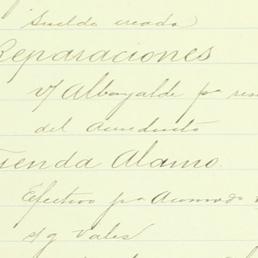 Sueldo creado
Reparaciones
v/ Albayalde pa
del Acueducto
Tienda Alamo
Efectivo pa Acomodo
s/g Vales